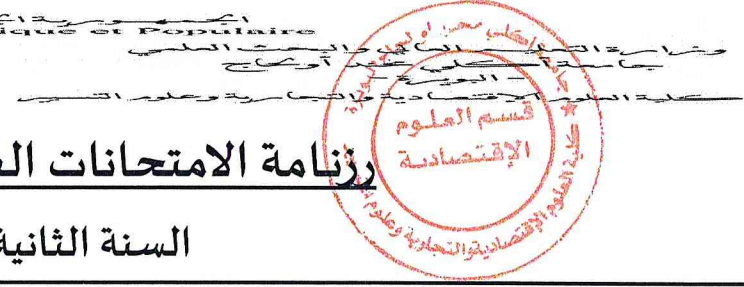 ique et Populaire
وزارة التعليم العالي والبحث العلمي
جامعة أكلي محند أولحاج
- البويرة -
كلية العلوم الاقتصادية والتجارية وعلوم التسيير
قسم العلوم
الإقتصادية
كلية العلوم الإقتصادية والتجارية وعلوم
رزنامة الامتحانات
السنة الثانية